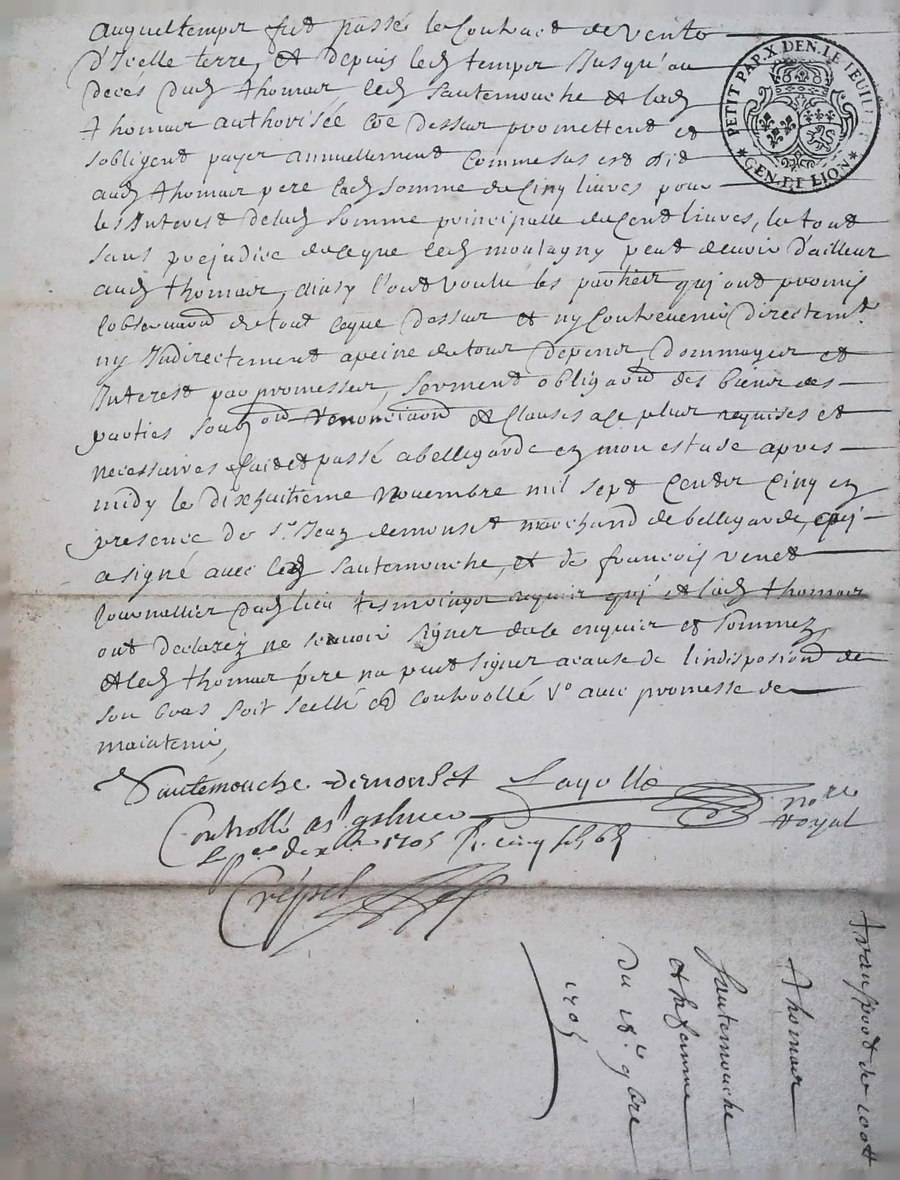 auquel temps fut passé le Contract de vente
d'Icelle terre, et depuis led temps Jusqu'au
deces dud thomas led Sautemouche et lad
thomas authorisée coe dessus promettent et
sobligent payer annuellement comme sus est dit
aud thomas pere lad somme de Cinq liures pour
les Interest delad somme principalle de Cent liures, le tout
sans prejudice de ce que led montagny peut deuoir d'ailleur
aud thomas, ainsy l'ont voulu les parties qui ont promis
lobseruaon de tout ce que dessus et ny Contreuenir directemt
ny Indirectement a peine de tous depens, dommages et
Interest par promesses, serment obligaon des biens des
parties soubzon renonciaon et clauses a ce plus requises et
necessaires fait et passé a bellegarde en mon estude apres
midy le dixhuitieme Novembre mil sept Cents Cinq en
presence de Sr Jean demonset marchand de bellegarde, qui
a signé avec led Sautemouche, et de francois venet
Journallier dud lieu tesmoings requis qui et lad thomas
ont declarez ne scauoir signer de ce enquis et sommez
et led thomas pere na peut signer a cause de l'indisposion de
son bras soit scellé et controollé Vo avec promesse de
maintenir,
Sautemouche demonset Layolle
nore
royal
Controllé a St galmier
le per dexbre 1705 R. cinq s
Crépet
PETIT PAP. X DEN. LE FEUILLET
GEN. DE LION
transport de 100 tt
thomas
Sautemouche
et sa femme
du 18e 9bre
1705